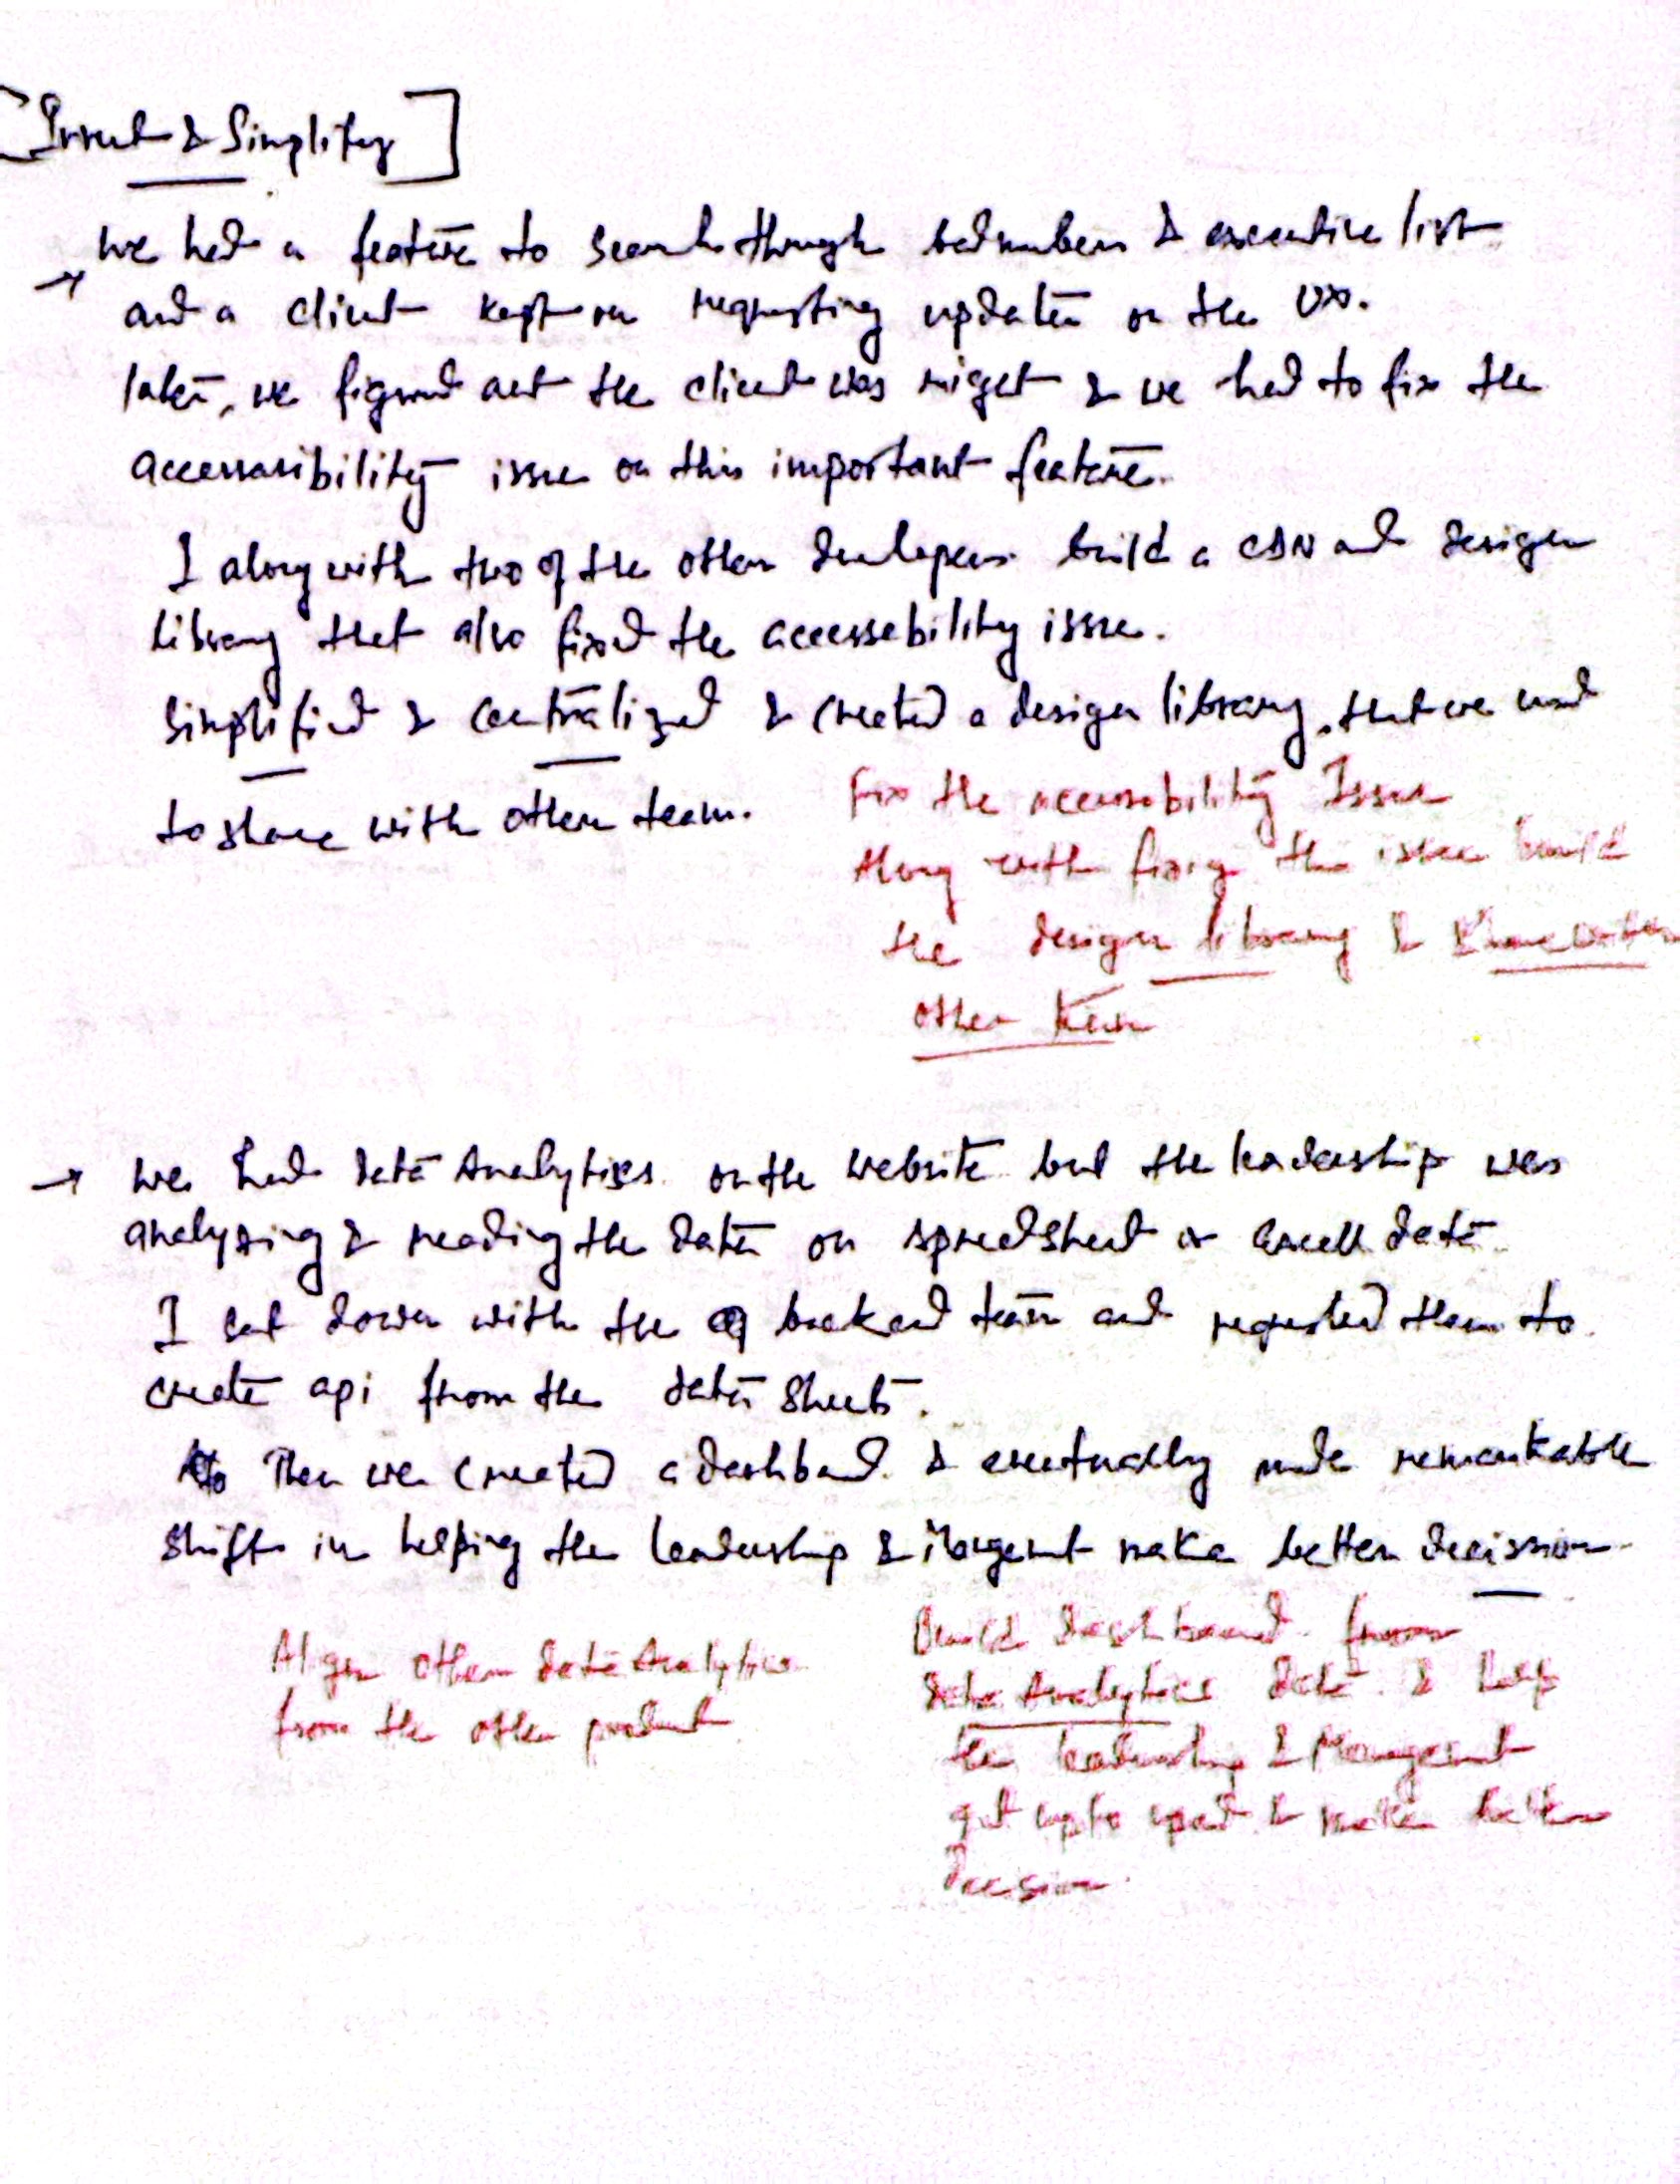 [Invent & Simplify]
→ We had a feature to search through bed numbers & executive list
and a client kept on requesting updates on the UX.
later, we figured out the client was right & we had to fix the
accessasibility issue on this important feature.
I along with two of the other developers build a CDN and design
library that also fixed the accessebility issue.
Simplified & Centralized & Created a design library. that we used
to share with other team.
Fix the accessibility Issue
Along with fixing the issue build
the design library & share with
other team
→ We had data Analytics on the website but the leadership was
analyzing & reading the data on spreedsheet or excell data.
I sat down with the backend team and requested them to
create api from the data sheets.
Then we created a dashboard & eventually made remarkable
shift in helping the leadership & Mangemnt make better decission.
Align other data Analytics
from the other product
Build dashboard from
data Analytics data & help
the leadership & Mangemnt
get upto speed & make better
Decision.